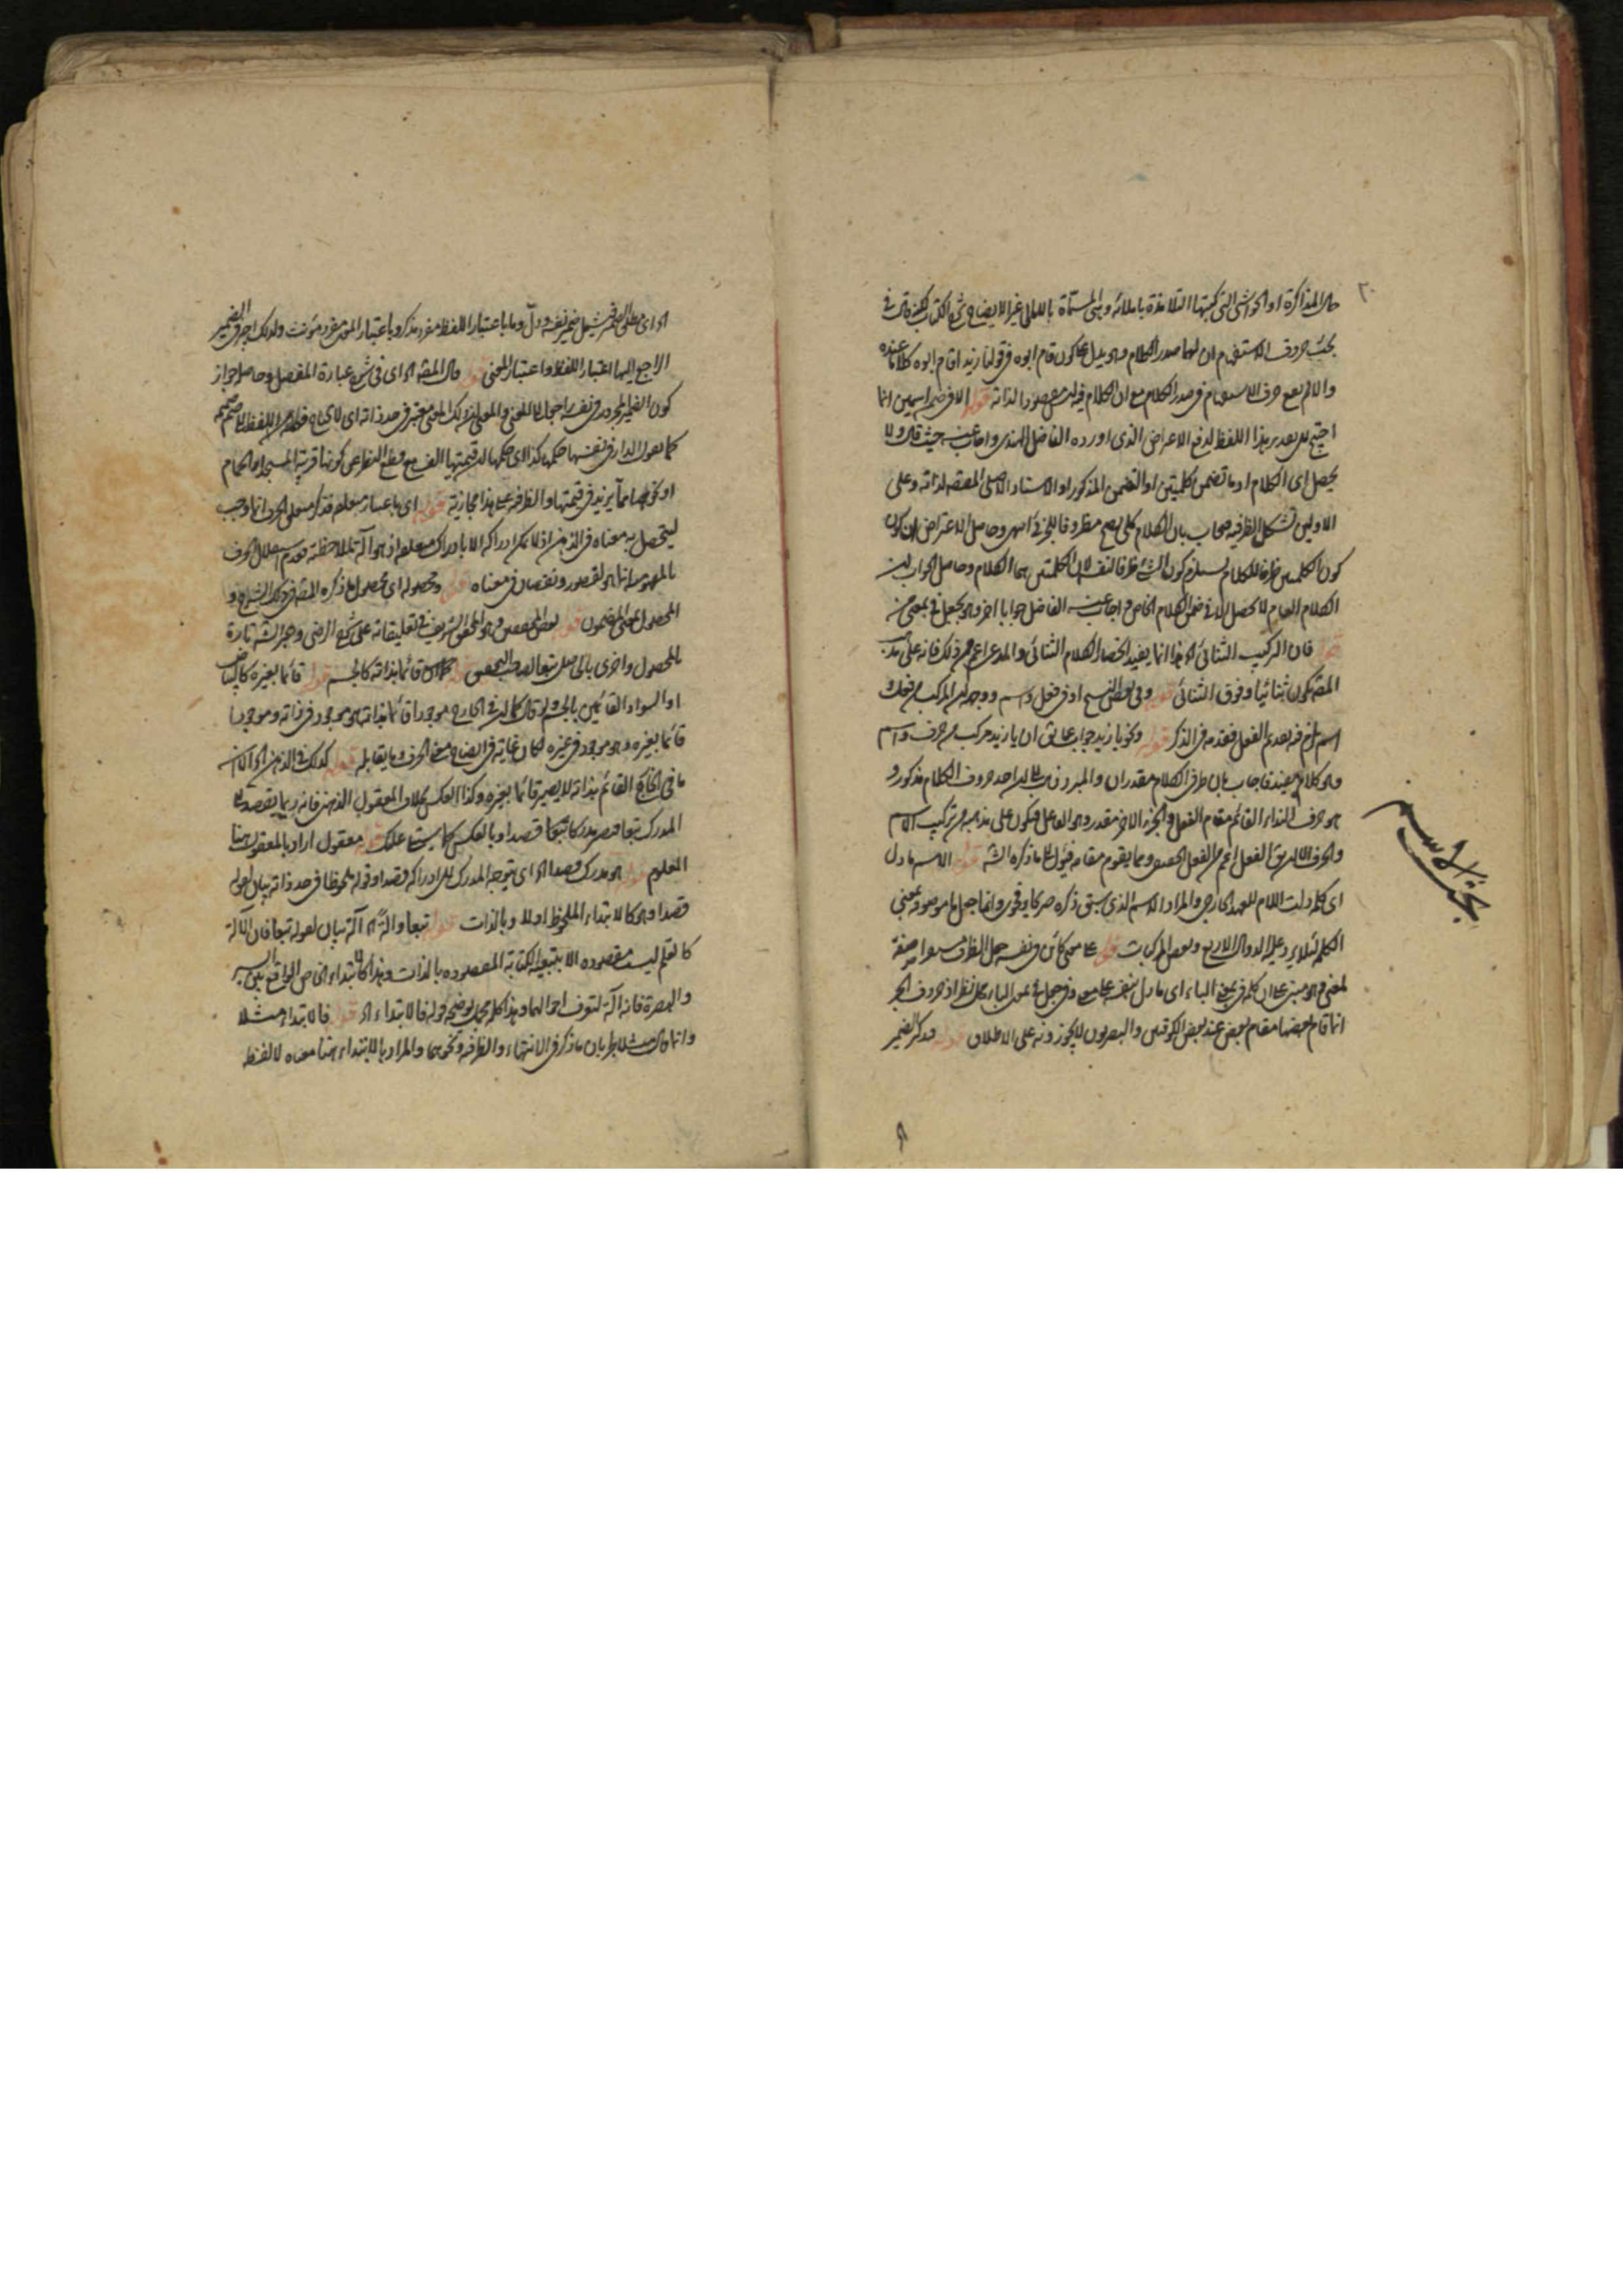 حال المذاكرة او الحواشي التي كتبها التلامذة باملائه وهي المسماة بالامالي غير الايضاح شرح الكتاب لكنه قال في
بحث حروف الاستفهام ان لها صدر الكلام وهو يدل على كون قام ابوه في قولنا زيد اقام ابوه كلاما عنده
والا لم يقع حرف الاستفهام في صدر الكلام مع ان الكلام فيه ليس مقصودا لذاته قوله الا في ضمن اسمين انما
احتيج الى تقدير هذا اللفظ لدفع الاعتراض الذي اورده الفاضل الهندي واجاب عنه حيث قال ولا
يحصل اى الكلام او ما تضمن كلمتين او التضمن المذكور او الاسناد الاصلي المقصود لذاته وعلى
الاولين تشكل الظرفية فيجاب بان الكلام كلي يصح مظروفا للجزئي انتهى وحاصل الاعتراض ان كون
كون الكلمتين ظرفا للكلام يستلزم كون الشئ ظرفا لنفسه لان الكلمتين هما الكلام وحاصل الجواب ان
الكلام العام لا يحصل الا في ضمن الكلام الخاص واجاب عنه الفاضل جوابا اخر وهو يجعل في بمعنى من
قوله فان التركيب الثنائي اه هذا انما يفيد انحصار الكلام الثنائي والمدعى اعم من ذلك فانه على مذهب
المصنف يكون ثنائيا وفوق الثنائي قوله وفي بعض النسخ او في فعل واسم ووجه ان المركب من فعل و
اسم لزم فيه تقديم الفعل فقدمه في الذكر قوله ونحو يا زيد جواب عما يقال ان يا زيد مركب من حرف واسم
وهو كلام مفيد فاجاب بان طرفي الكلام مقدران والمبرد ذهب الى ان احد طرفي الكلام مذكور و
هو حرف النداء القائم مقام الفعل والجزء الاخر مقدر وهو الفاعل فيكون على مذهبه من تركيب الاسم
والحرف الا ان يقال الفعل اعم من الفعل الحقيقي وما يقوم مقامه فيؤل الى ما ذكره الشه قوله الاسم ما دل
اى كلمة دلت اللام للعهد الخارجي والمراد الاسم الذي سبق ذكره صريحا وانما جعل ما موصوفة بمعنى
الكلمة لئلا يرد عليه الدوال الاربع وبعض المركبات قوله على معنى كائن في نفسه جعل الظرف مستقرا صفة
لمعنى وهو مبني على ان كلمة في بمعنى الباء اى ما دل بنفسه على معنى وفي جعل في بمعنى الباء محل نظر اذ حروف الجر
انما قام بعضها مقام بعض عند بعض الكوفيين والبصريون لا يجوزونه على الاطلاق قوله فتذكير الضمير
بحث الاسم
اه اى
الراجع اليها اعتبار اللفظ واعتبار المعنى قوله قال المصنف اه اى في شرح عبارة المفصل وحاصله جواز
كون الضمير المجرور في نفسه راجعا الى المعنى والمعنى ان ذلك المعنى معتبر في حد ذاته
كما يقول الدار في نفسها حكمها كذا اى حكمها ان قيمتها الف مع قطع النظر عن كونها قرب المسجد او الحمام
او نحوهما مما يزيد في قيمتها والظرفية على هذا مجازية قوله اى باعتبار متعلقه فذكر متعلق الحرف انما وجب
ليتحصل به معناه في الذهن اذ لا يمكن ادراكه الا بادراك متعلقه اذ هو آلة لملاحظته فعدم استقلال الحرف
بالمفهومية انما هو لقصور ونقصان في معناه قوله ومحصوله اى محصول ما ذكره المصنف في ذلك الشرح و
المحصول بمعنى المضمون قوله بعض المحققين وهو المحقق الشريف في تعليقاته على شرح الرضي وعبر الشه تارة
بالمحصول واخرى بالحاصل قوله قائما بذاته كالجسم قوله قائما بغيره كالبياض
او السواد القائمين بالجسم ولو قال كما ان في الخارج موجودا قائما بذاته هو موجود في ذاته وموجودا
قائما بغيره هو موجود في غيره لكان غاية في ايضاح معنى الحرف وما يقابله قوله كذلك في الذهن اه الا ان
ما في الخارج القائم بذاته لا يصير قائما بغيره وكذا العكس بخلاف المعقول الذهني فانه ربما يقصد
المدرك تبعا فيصير مدركا قصدا وبالعكس كما سيتلى عليك قوله معقول اراد بالمعقول هنا
المعلوم قوله هو مدرك قصدا اه اى يتوجه المدرك الى ادراكه قصدا وقوله ملحوظا في حد ذاته بيان لقوله
قصدا وهو كالابتداء الملحوظ اولا وبالذات قوله تبعا وآلة اه آلة بيان لقوله تبعا فان الآلة
كالقلم ليست مقصودة الا بتبعية الكتابة المقصودة بالذات وهذا كالابتداء الخاص الواقع بين السير
والبصرة فانه آلة لتعرف احوالهما وهذا كله مجمل يوضحه قوله فالابتداء اه قوله فالابتداء مثلا
وانما قال مثلا لجريان ما ذكر في الانتهاء والظرفية ونحوهما والمراد بالابتداء هنا معناه لا لفظه